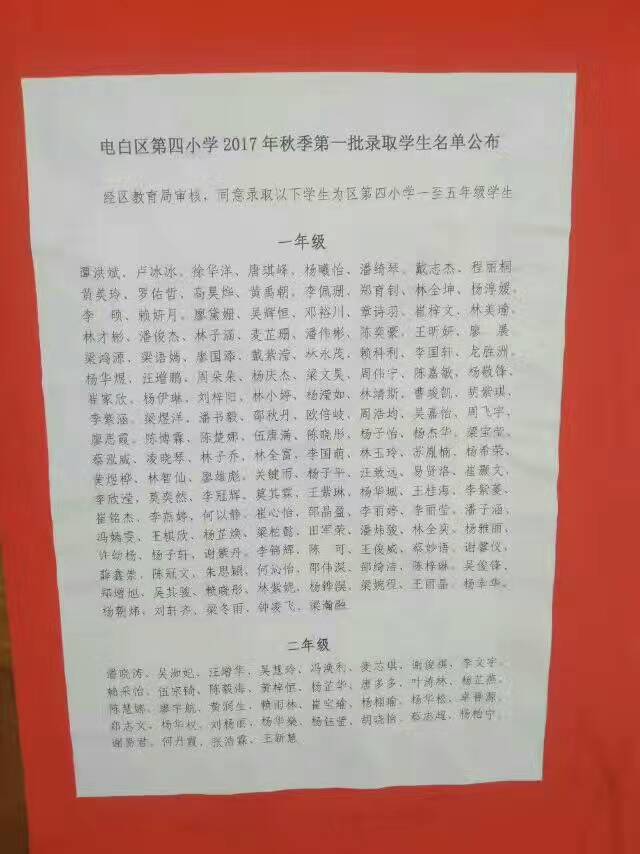 电白区第四小学2017年秋季第一批录取学生名单公布
经区教育局审核，同意录取以下学生为区第四小学一至五年级学生
一年级
谭洪斌、卢冰冰、徐华洋、唐琪峰、杨曦怡、潘绮琴、戴志杰、程丽桐
黄英玲、罗佑哲、高昊烨、黄禹朝、李佩珊、郑育钊、林全坤、杨淳媛、
李 硕、赖妍月、廖黛姗、吴辉恒、邓裕川、章诗羽、崔梓文、林美瑜、
林才彬、潘俊杰、林子涵、麦芷珊、潘作彬、陈奕豪、王昕妍、廖 晨
梁鸿源、梁语嫣、廖国添、戴紫滢、林永茂、赖科利、李国轩、龙胜洲、
杨华煜、汪增鹏、周朵朵、杨庆杰、梁文昊、周伟宁、陈嘉敏、杨敬锋、
崔家欣、杨伊琳、刘梓阳、林小婷、杨滢如、林靖斯、曹竣凯、胡紫琪、
李紫涵、梁煜洋、潘书毅、邵秋丹、欧倍岐、周浩均、吴嘉怡、周飞宇、
廖思霞、陈博霖、陈楚娜、伍唐满、陈晓彤、杨子怡、杨杰华、梁宝莹、
蔡泓威、凌晓琴、林子乔、林全富、李国萌、林玉玲、苏胤楠、杨希荣、
黄煜桦、林智仙、廖雄彪、关键而、杨子平、汪致远、易贤洛、崔灏文、
李欣滢、莫奕然、李冠辉、莫其霖、王紫琳、杨华城、王桂海、李紫菱、
崔铭杰、李燕婷、何以静、崔心怡、邵晶盈、李雨婷、李丽莹、潘子涵、
冯嫣雯、王棋欣、杨芷焕、梁松懿、田军荣、潘炜骏、林全奕、杨雅丽、
许幼杨、杨子轩、谢紫丹、李锦辉、陈 可、王俊威、蔡妙语、谢馨仪、
薛鑫崇、陈冠文、朱思颖、何沁怡、邵伟深、邵绮洁、陈梓琳、吴俊锋、
郑增旭、吴其骏、赖晓彤、林紫妮、杨铧淏、梁琬程、王雨晶、杨幸华、
杨朝炜、刘轩齐、梁冬雨、钟凌飞、梁瀚融
二年级
潘晓涛、吴汝妃、汪增华、吴慧玲、冯焕利、麦芯琪、谢俊祺、李文宇、
赖采怡、伍家锜、陈毅海、黄梓恒、杨芷华、唐多多、叶涛林、杨芷燕、
陈慧娜、廖宇航、黄润生、赖雨林、崔宝瑜、杨相瑜、杨华松、卓晋源、
郑志文、杨华权、刘杨丽、杨华燊、杨钰莹、胡晓怡、蔡志超、杨柏宁、
谢贤君、何丹霞、张浩霖、王新慧